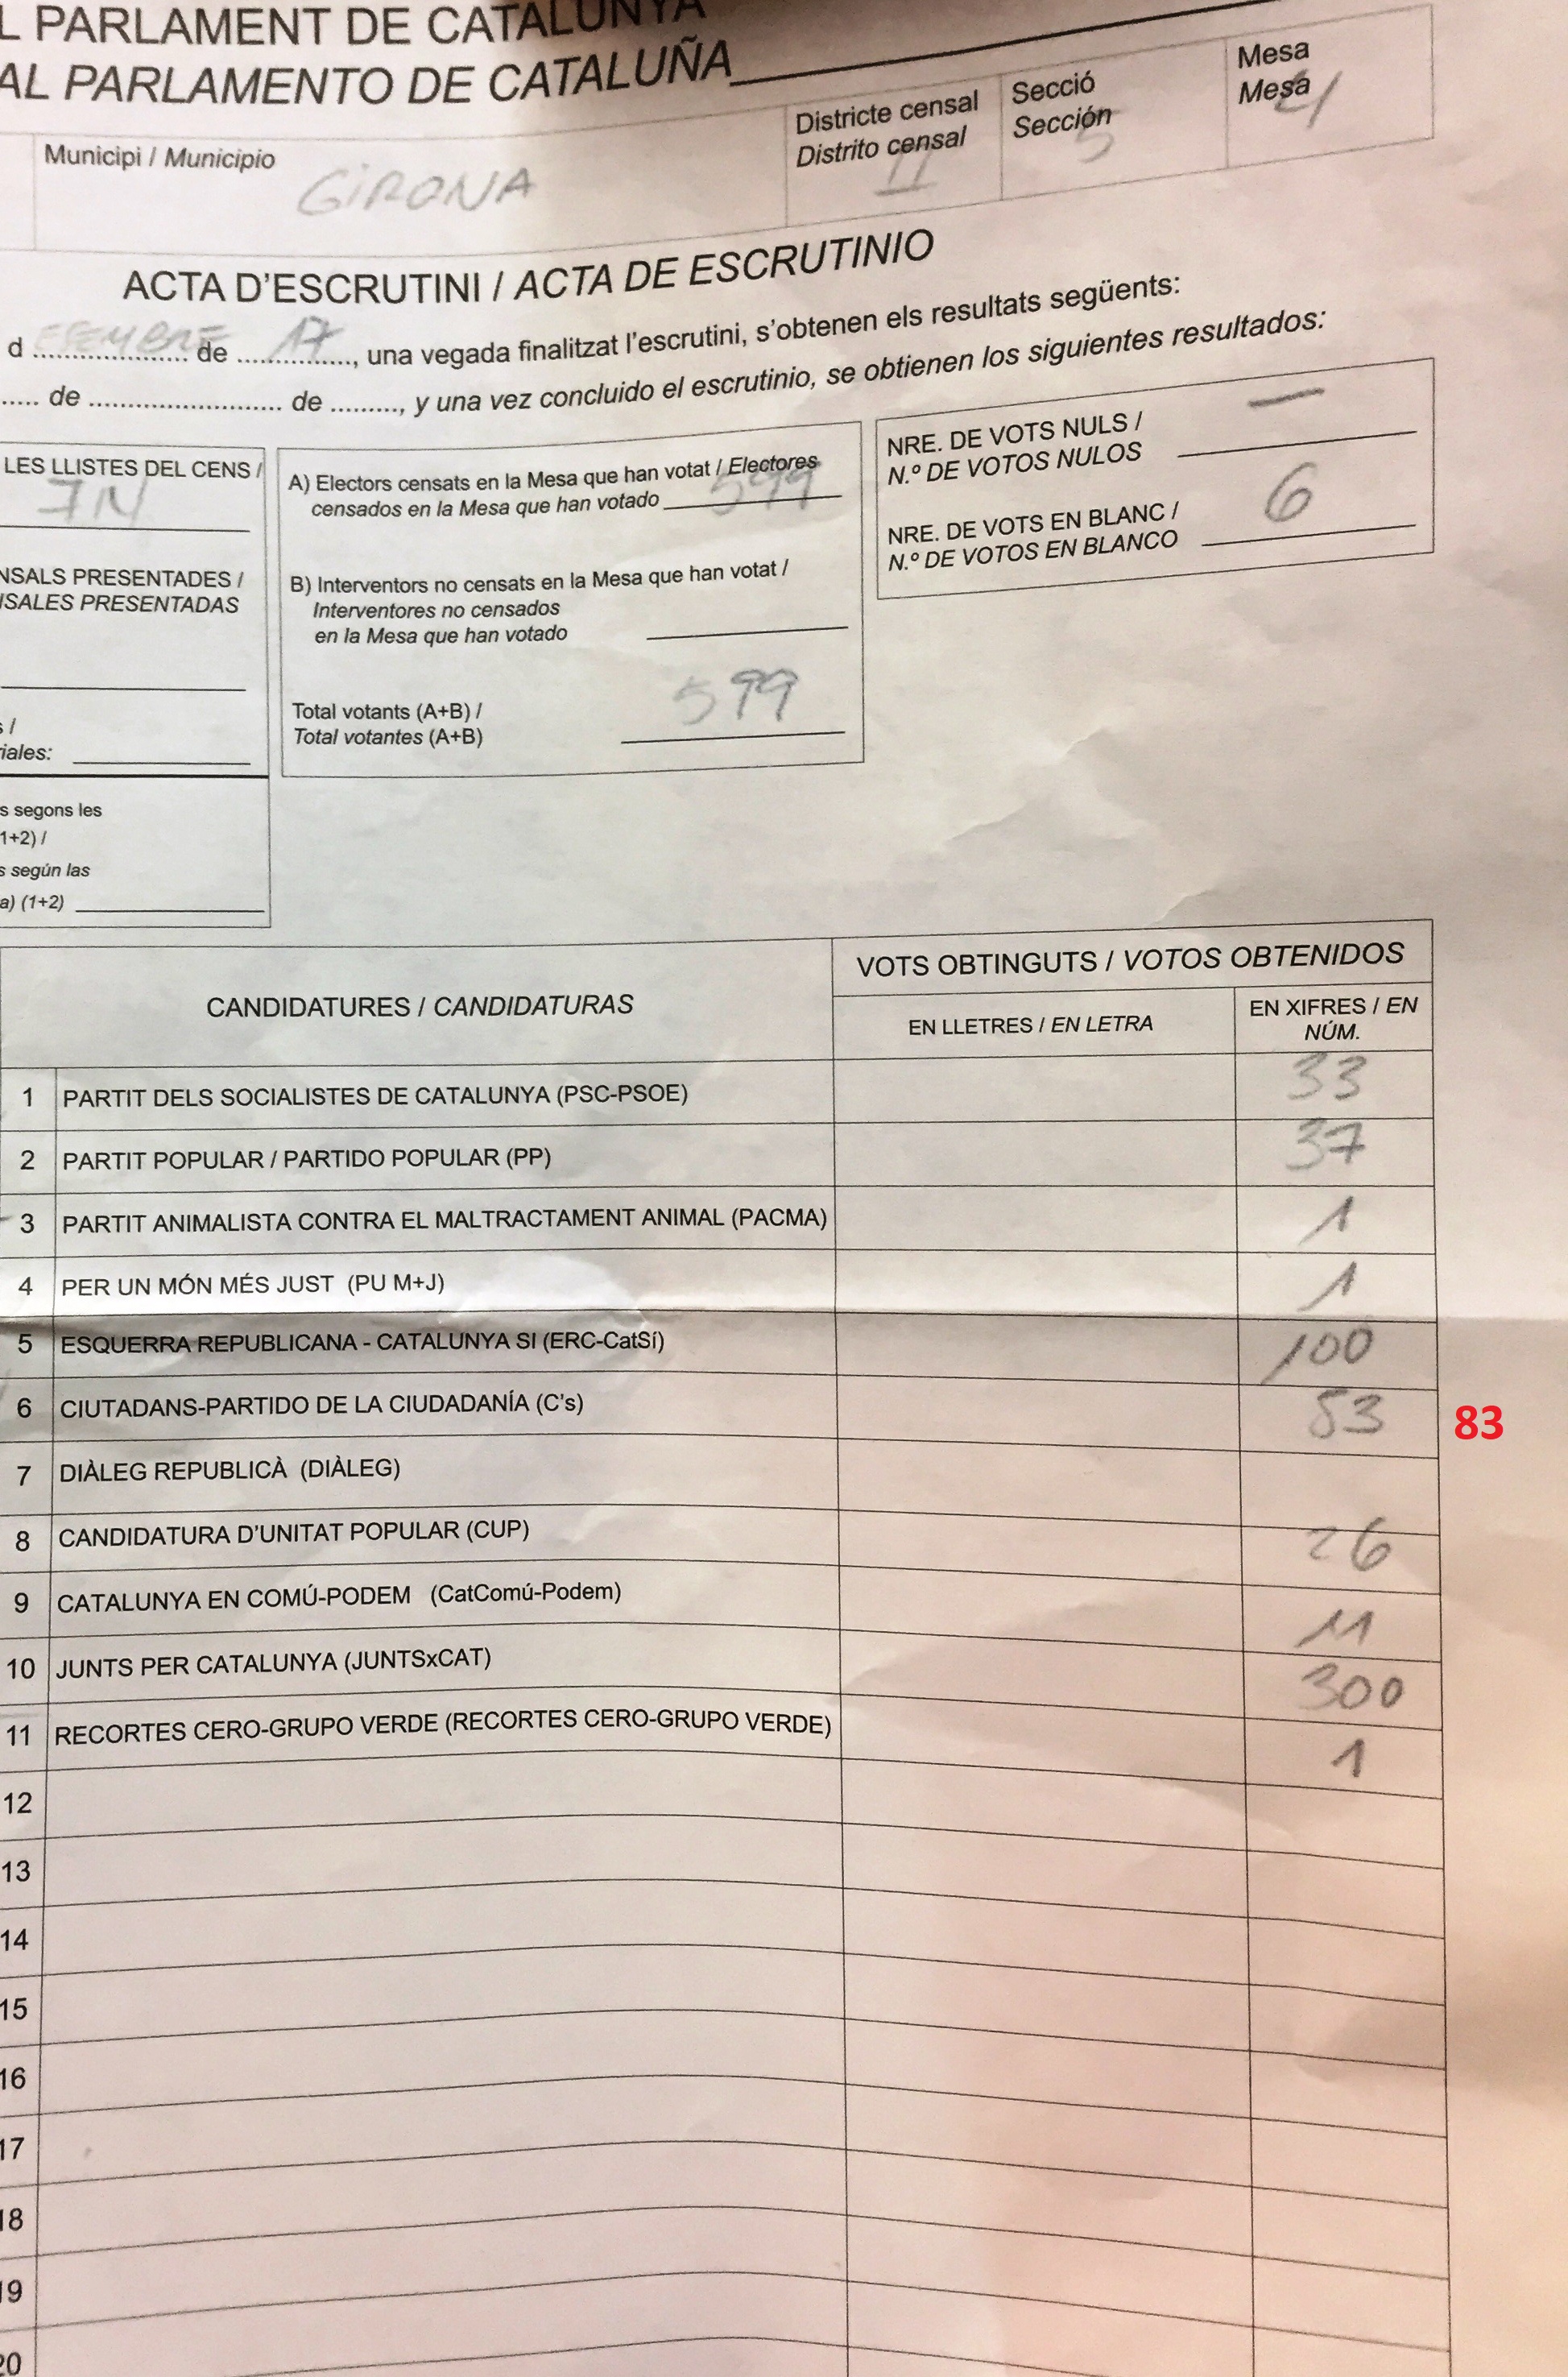 L PARLAMENT DE CATALUNYA
AL PARLAMENTO DE CATALUÑA
Municipi / Municipio
GIRONA
Districte censal
Distrito censal
II
Secció
Sección
5
Mesa
Mesa
ACTA D'ESCRUTINI / ACTA DE ESCRUTINIO
d ........ de 17, una vegada finalitzat l'escrutini, s'obtenen els resultats següents:
..... de ........................ de ........., y una vez concluido el escrutinio, se obtienen los siguientes resultados:
LES LLISTES DEL CENS /
NSALS PRESENTADES /
ISALES PRESENTADAS
s /
riales:
s segons les
1+2) /
s según las
a) (1+2)
A) Electors censats en la Mesa que han votat / Electores
censados en la Mesa que han votado 599
B) Interventors no censats en la Mesa que han votat /
Interventores no censados
en la Mesa que han votado
Total votants (A+B) /
Total votantes (A+B) 599
NRE. DE VOTS NULS /
N.º DE VOTOS NULOS —
NRE. DE VOTS EN BLANC /
N.º DE VOTOS EN BLANCO 6
CANDIDATURES / CANDIDATURAS
VOTS OBTINGUTS / VOTOS OBTENIDOS
EN LLETRES / EN LETRA
EN XIFRES / EN
NÚM.
1 PARTIT DELS SOCIALISTES DE CATALUNYA (PSC-PSOE) 33
2 PARTIT POPULAR / PARTIDO POPULAR (PP) 37
3 PARTIT ANIMALISTA CONTRA EL MALTRACTAMENT ANIMAL (PACMA) 1
4 PER UN MÓN MÉS JUST (PU M+J) 1
5 ESQUERRA REPUBLICANA - CATALUNYA SI (ERC-CatSí) 100
6 CIUTADANS-PARTIDO DE LA CIUDADANÍA (C's) 83 83
7 DIÀLEG REPUBLICÀ (DIÀLEG)
8 CANDIDATURA D'UNITAT POPULAR (CUP) 26
9 CATALUNYA EN COMÚ-PODEM (CatComú-Podem) 11
10 JUNTS PER CATALUNYA (JUNTSxCAT) 300
11 RECORTES CERO-GRUPO VERDE (RECORTES CERO-GRUPO VERDE) 1
12
13
14
15
16
17
18
19
20